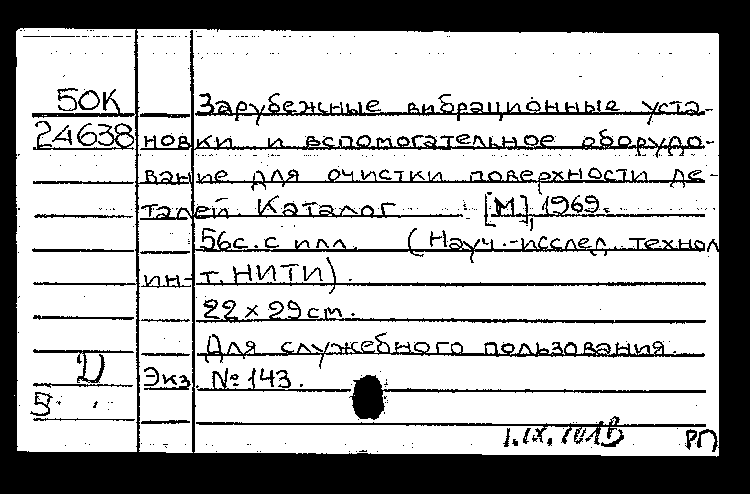 50К Зарубежные вибрационные уста-
24638 новки и вспомогательное оборудо-
вание для очистки поверхности де-
талей. Каталог [М], 1969.
56с. с илл. (Науч.-исслед. технол
ин-т. НИТИ).
22 х 29 cm.
Для служебного пользования.
D Экз. № 143.
5
1.IX.
РП